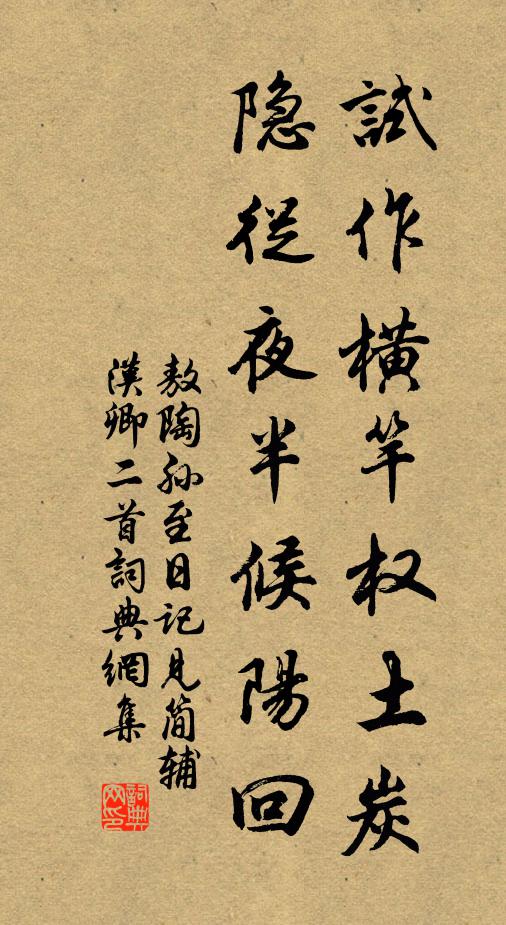 試作横竿权土炭
隐從夜半候陽回
敖陶孙至日記見简辅
漢卿二首詞典網集
詞典網印